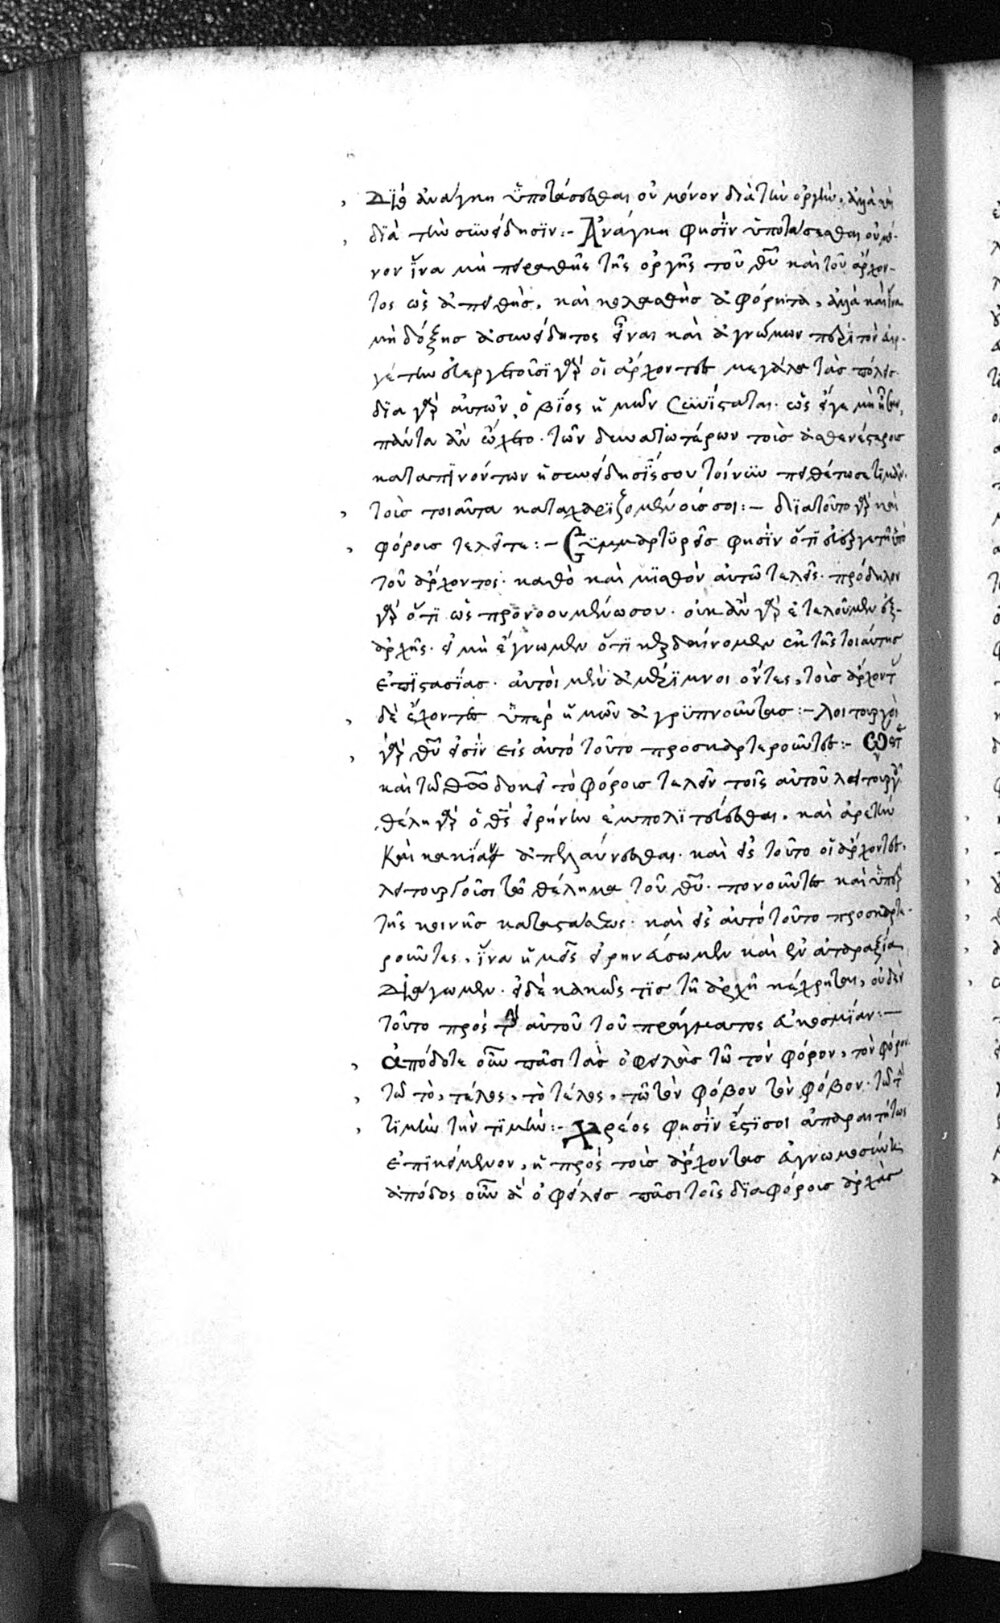 Διὸ ἀνάγκη ὑποτάσσεσθαι οὐ μόνον διὰ τὴν ὀργὴν, ἀλλὰ καὶ
διὰ τὴν συνείδησϊν:- Ἀνάγκη φησὶν ὑποτάσσεσθαι οὐ μό-
νον ἵνα μὴ πειραθῆς τῆς ὀργῆς τοῦ θῦ καὶ τοῦ ἄρχον-
τος ὡς ἀπειθὴς, καὶ κολασθῆς ἀφόρητα, ἀλλὰ καὶ ἵνα
μὴ δόξης ἀσυνείδητος εἶναι καὶ ἀγνώμων περὶ τὸν εὐερ-
γέτην εὐεργετοῦσϊ γὰρ οἱ ἄρχοντες μεγάλα τὰς πόλεις
δϊα γὰρ αὐτῶν ὁ βίος ἡμῶν συνίσταται· ὡς εἴγε μὴ ἦσαν,
πάντα ἂν ὤχετο· τῶν δυνατωτέρων τοὺς ἀσθενεστέρους
καταπινόντων ἡ συνείδησίς σου τοίνυν πειθέτω σε τιμᾶν
τοὺς τοιαῦτα καταχαρϊζομένους σοι:- δϊατοῦτο γὰρ καὶ
φόρους τελεῖτε:- Συμμαρτυρεῖς φησὶν ὅτι εὐεργετῆ ὑπὸ
τοῦ ἄρχοντος· καθὸ καὶ μϊσθὸν αὐτῶ τελεῖς· πρόδηλον
γὰρ ὅτι ὡς προνοουμένω σου· οὐκ ἂν γὰρ ἐτελοῦμεν ἐξ-
ἀρχῆς· εἰ μὴ ἔγνωμεν ὅτι κερδαίνομεν ἐκ τῆς τοιαύτης
ἐπϊστασίας· αὐτοὶ μὲν ἀμέρϊμνοι ὄντες, τοὺς ἄρχοντας
δὲ ἔχοντες ὑπὲρ ἡμῶν ἀγρϋπνοῦντας:- λειτουργοὶ
γὰρ θῦ εἰσὶν εἰς αὐτὸ τοῦτο προσκαρτεροῦντες:- Ὥστε
καὶ τῶ θῶ δοκεῖ τὸ φόρους τελεῖν τοῖς αὐτοῦ λειτουργοῖς
θέλει γὰρ ὁ θς εἰρήνην ἐμπολϊτεύεσθαι, καὶ ἀρετὴν
καὶ κακίας ἀπελαύνεσθαι· καὶ εἰς τοῦτο οἱ ἄρχοντες
λειτουργοῦσι τῶ θελήματι τοῦ θῦ· πονοῦντες καὶ ὑπὲρ
τῆς κοινῆς καταστάσεως· καὶ εἰς αὐτὸ τοῦτο προσκαρτε-
ροῦντες, ἵνα ἡμεῖς εἰρηνεύσωμεν καὶ ἐν ἀταραξία
διάγωμεν· εἰ δὲ κακῶς τϊς τῆ ἀρχῆ κέχρηται, οὐδὲν
τοῦτο πρὸς τὴν αὐτοῦ τοῦ πράγματος εὐκοσμίαν:-
ἀπόδοτε οὖν πᾶσι τὰς ὀφειλὰς τῶ τὸν φόρον, τὸν φόρον
τῶ τὸ, τέλος, τὸ τέλος, τῶ τὸν φόβον τὸν φόβον· τῶ τὴν
τϊμὴν τὴν τϊμὴν:- Χρέος φησὶν ἐστί σοι ἀπαραιτήτως
ἐπϊκείμενον, ἡ πρὸς τοὺς ἄρχοντας εὐγνωμοσύνη
ἀπόδος οὖν ἃ ὀφείλεις πᾶσι τοῖς δϊαφόροις ἀρχὰς